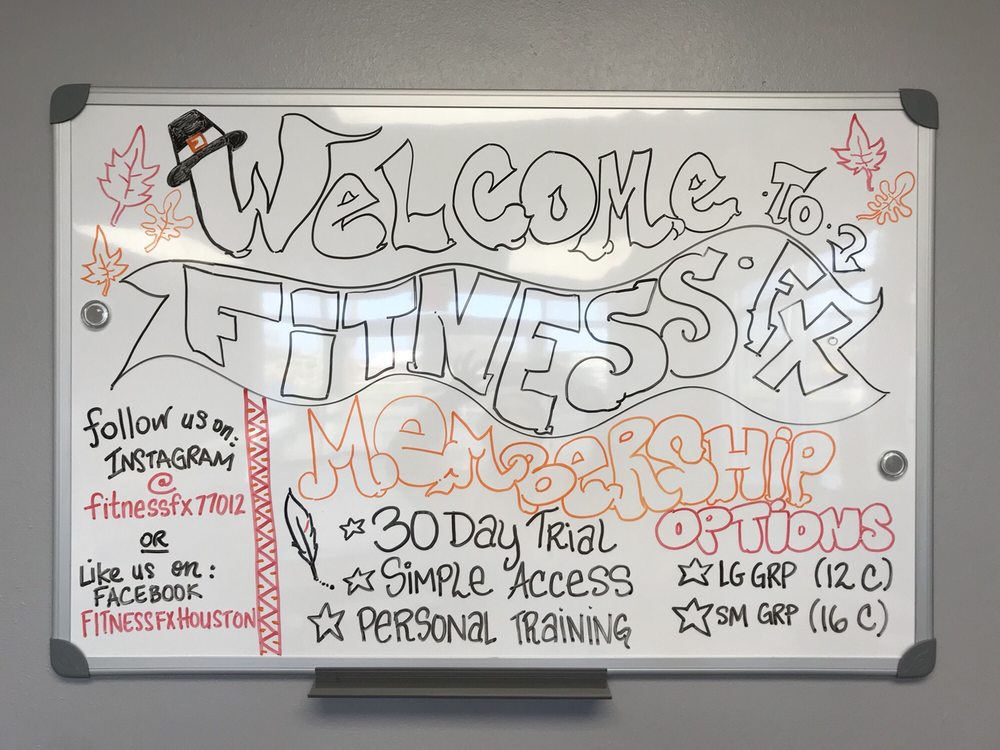 WELCOME TO
FiTNESS FX
follow us on:
INSTAGRAM
@
fitnessfx77012
OR
Like us on:
FACEBOOK
FITNESSFXHOUSTON
MEMBERSHiP
OPTIONS
30 Day Trial
Simple Access
Personal Training
LG GRP (12 C)
SM GRP (16 C)